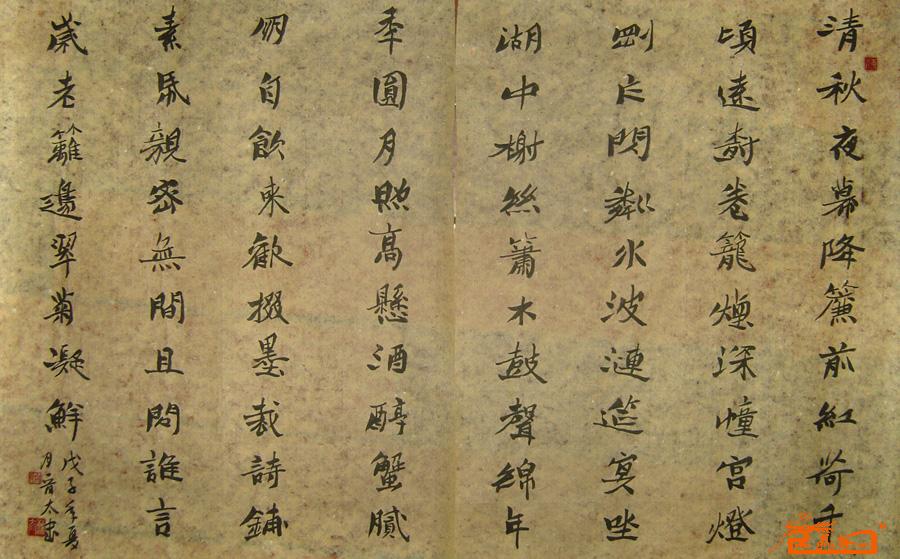 清秋夜幕降簾前紅荷千
頃遠樹卷籠煙深幢宮燈
剛閃粼水波漣冥坐
湖中榭絲簫木鼓聲錦年
年圓月照高懸酒醇蟹膩
朋自飲來歡掇墨裁詩鋪
素帛親密無間且問誰言
歲老籬邊翠菊凝鮮
戊子年夏
月